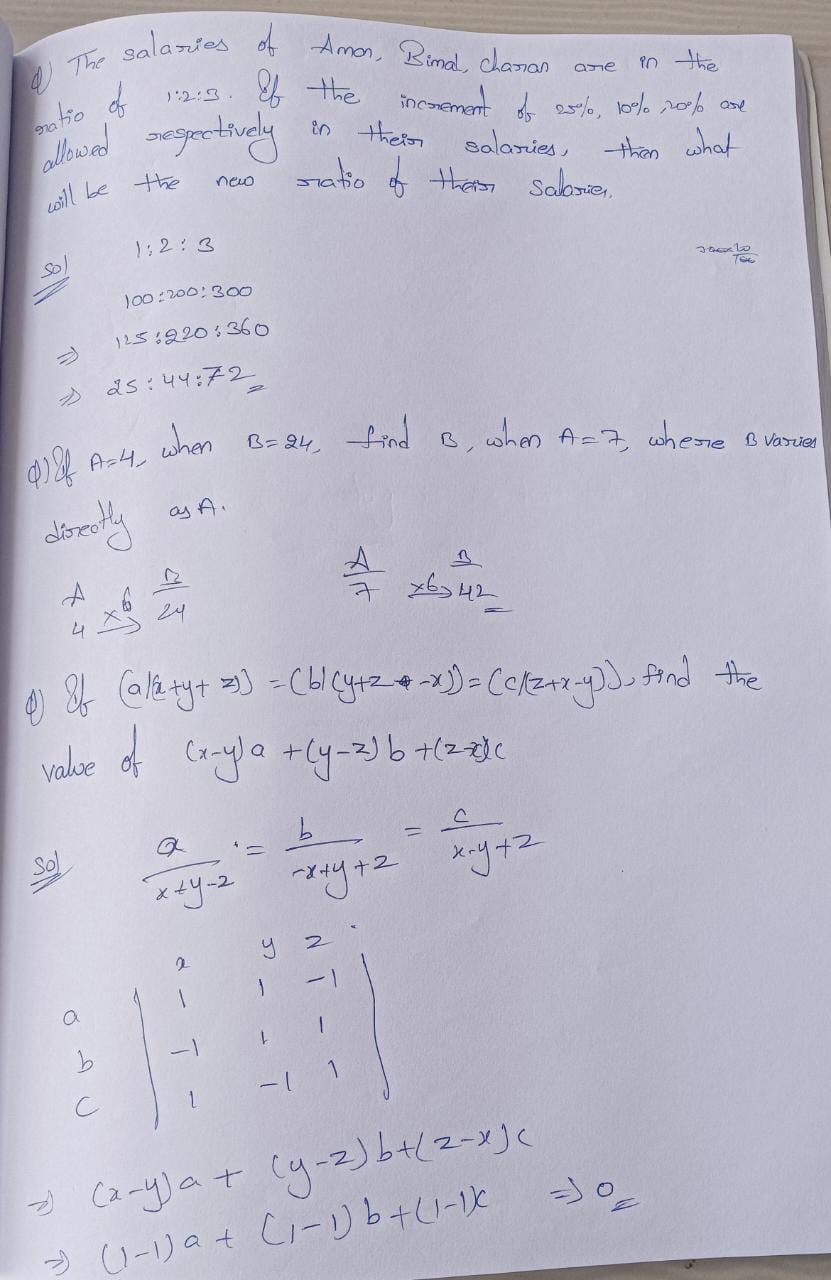 Q) The salaries of Aman, Bimal, charan are in the
ratio of 1:2:3. If the increment of 25%, 10%, 20% are
allowed respectively in their salaries, then what
will be the new ratio of their salaries.
Sol 1:2:3
100:200:300
⇒ 125:220:360
⇒ 25:44:72
Q) If A=4, when B=24, find B, when A=7, where B varies
directly as A.
A B A B
4 x6 24 7 x6 42
Q) If (a/(x+y+z)) = (b/(y+z-x)) = (c/(z+x-y)), find the
value of (x-y)a + (y-z)b + (z-x)c
Sol a/(x+y-z) = b/(-x+y+z) = c/(x-y+z)
x y z
a 1 1 -1
b -1 1 1
c 1 -1 1
⇒ (x-y)a + (y-z)b + (z-x)c
⇒ (1-1)a + (1-1)b + (1-1)c ⇒ 0